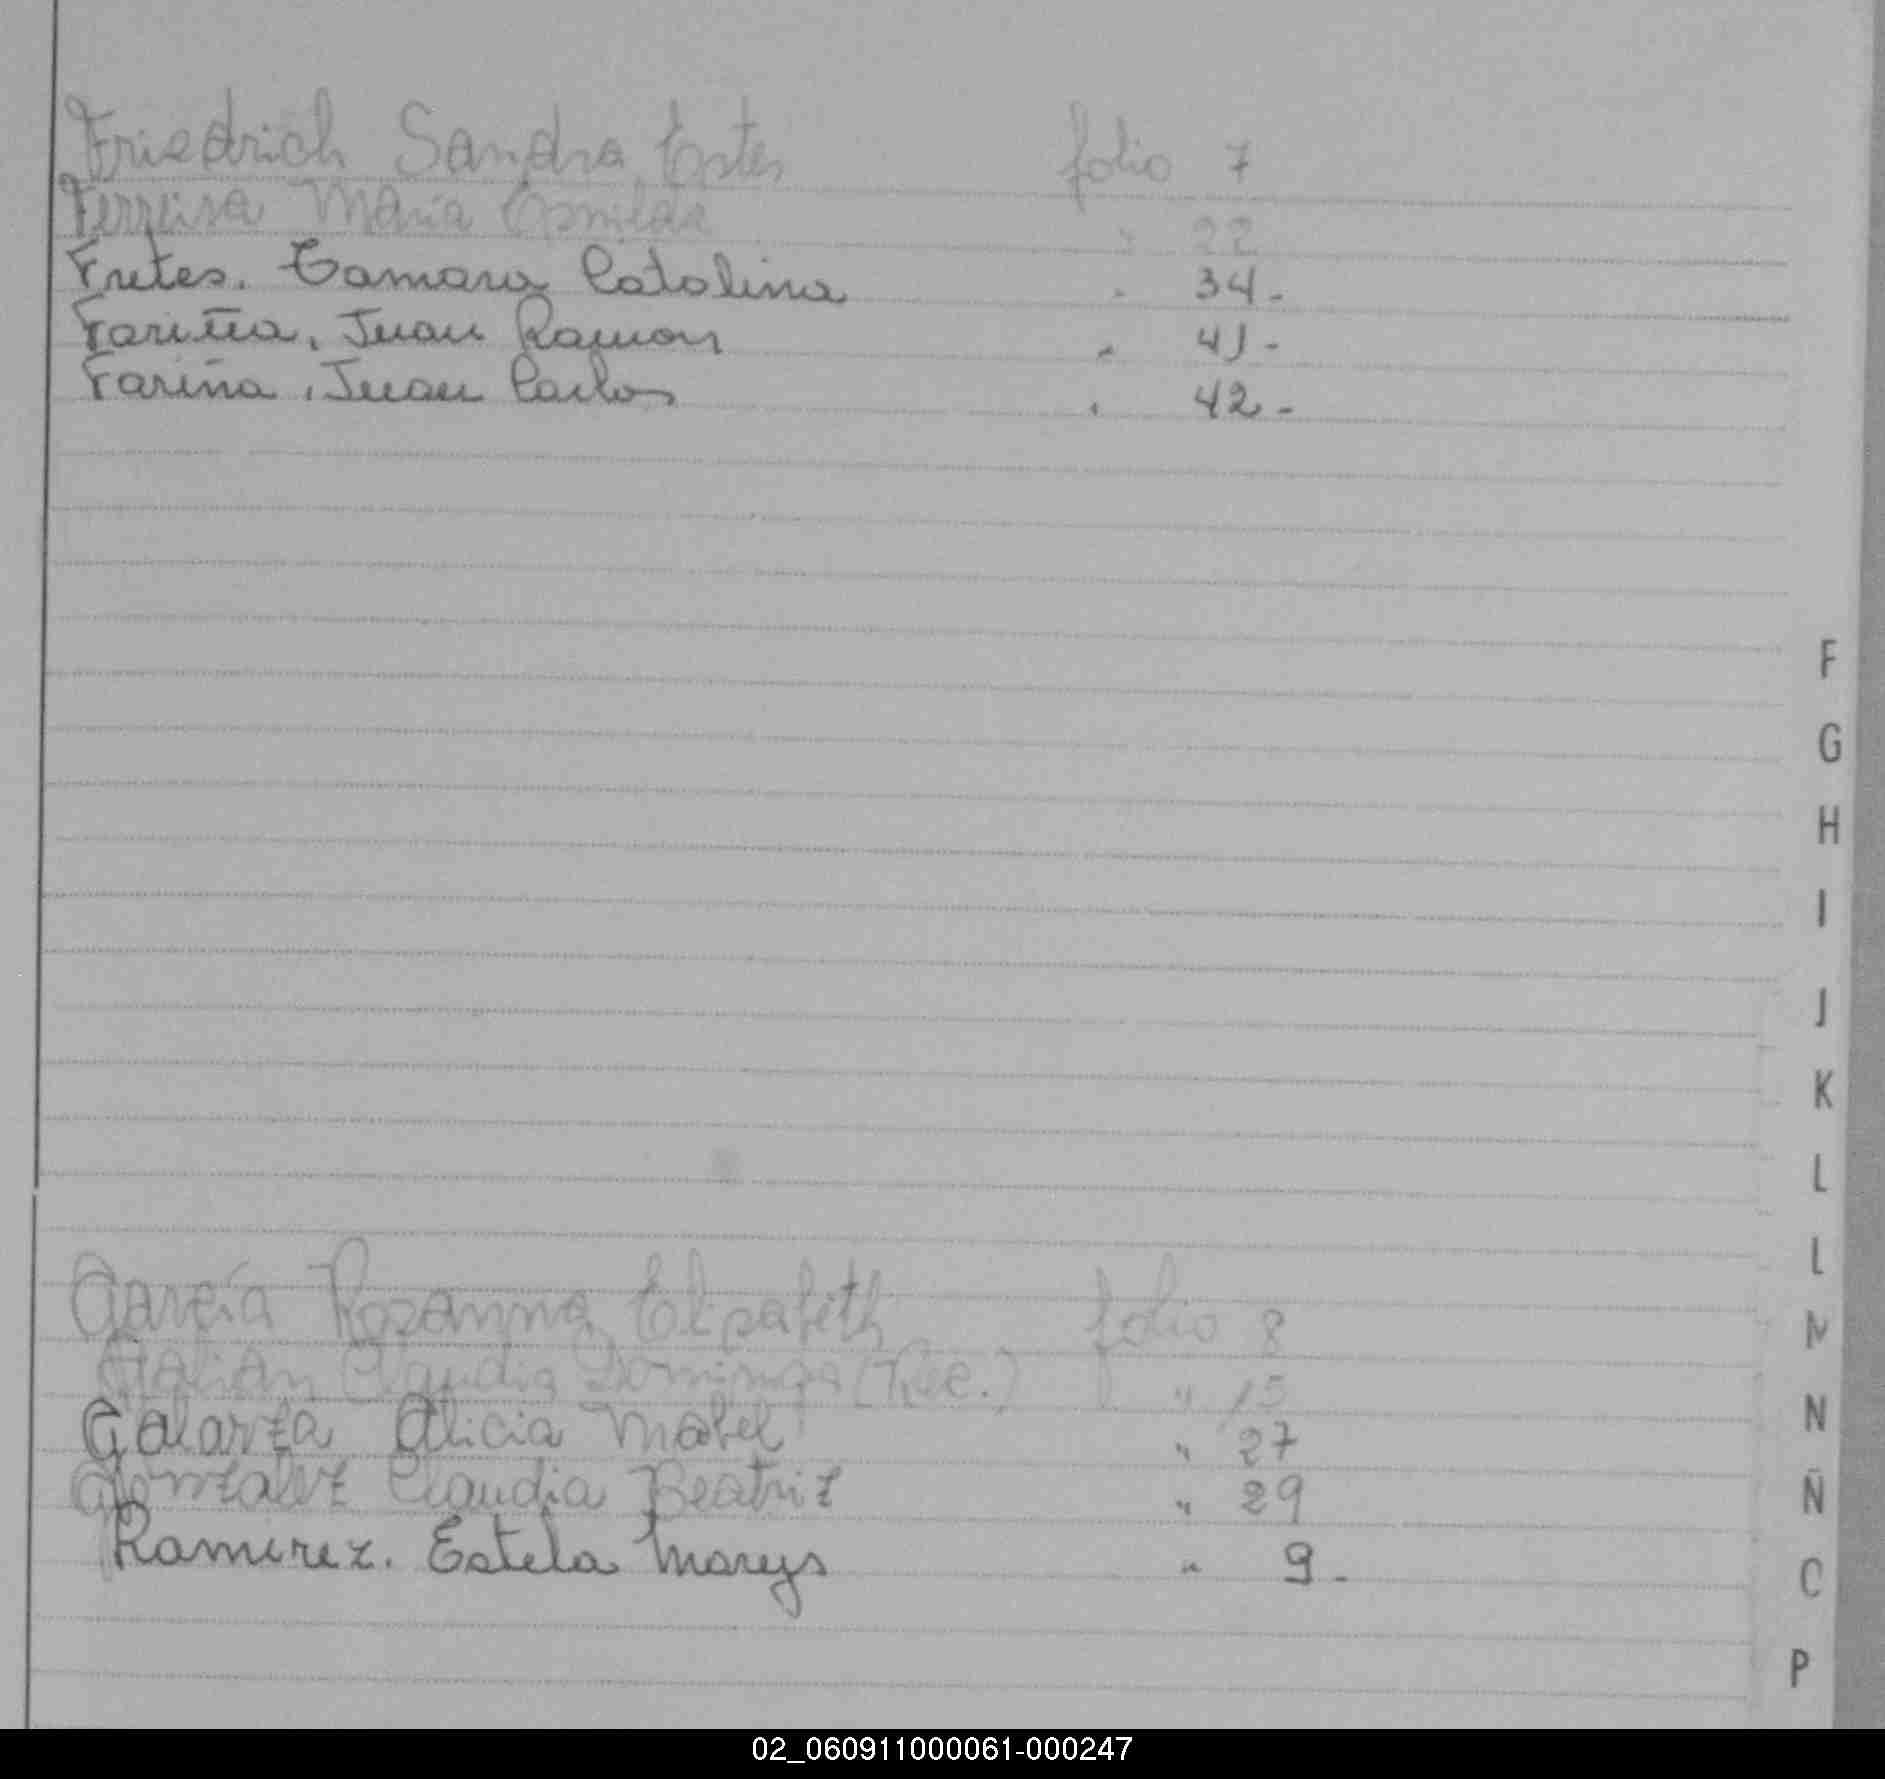 Friedrich Sandra Ester folio 7
Ferreira Maria Esmilda " 22
Fretes. Tamara Catalina " 34.
Fariña, Juan Ramon " 41-
Fariña, Juan Carlos " 42-
F
G
H
I
J
K
L
García Rozanna Elizabeth folio 8
L
M
Galián Claudia Dominga (Rec.) " 15
Galarza Alicia Mabel " 27
N
Gonzalez Claudia Beatriz " 29
Ñ
Ramirez. Estela Marys " 9.
P
02_060911000061-000247